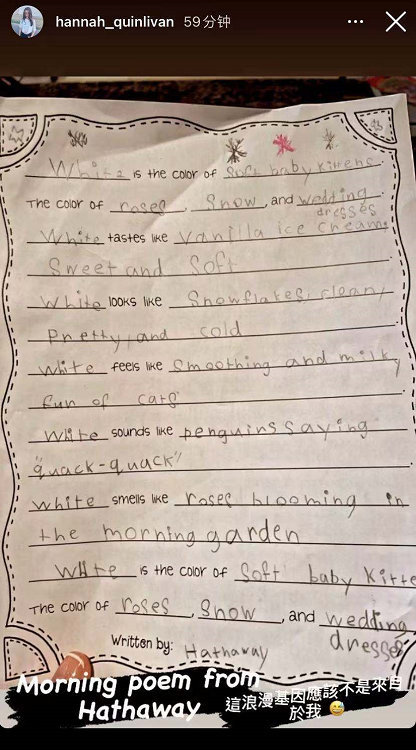 hannah_quinlivan 59分钟
White is the color of soft baby kittens
The color of roses, Snow, and wedding
dresses
White tastes like Vanilla ice cream,
Sweet and Soft
White looks like Snowflakes, clean,
Pretty, and cold
White feels like Smoothing and milk
fun of cats
White sounds like penguins saying
"quack-quack"
White smells like roses blooming in
the morning garden
White is the color of Soft baby kitte
The color of roses, Snow, and wedding
dresses
Written by: Hathaway
Morning poem from
Hathaway
這浪漫基因應該不是來自
於我 😅